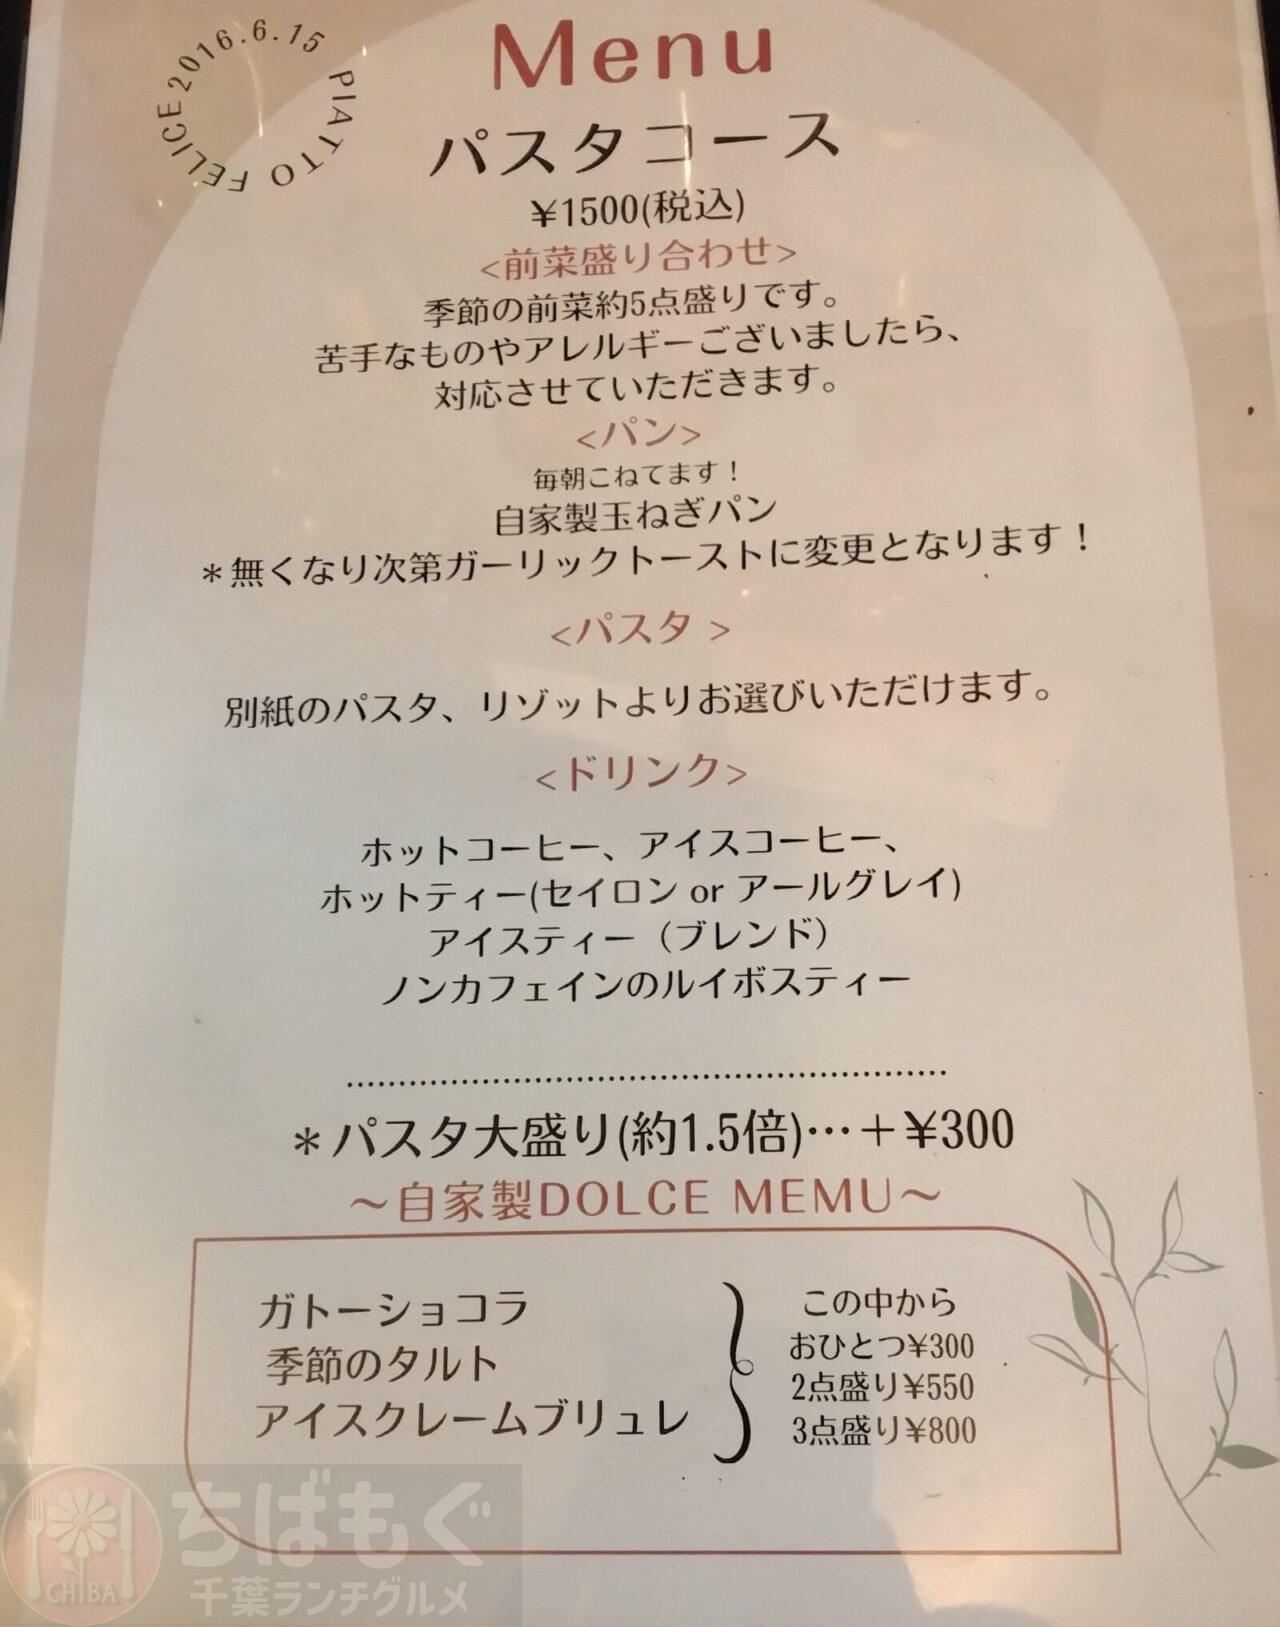 2016.6.15 PIATTO FELICE
Menu
パスタコース
¥1500(税込)
<前菜盛り合わせ>
季節の前菜約5点盛りです。
苦手なものやアレルギーございましたら、
対応させていただきます。
<パン>
毎朝こねてます！
自家製玉ねぎパン
＊無くなり次第ガーリックトーストに変更となります！
<パスタ >
別紙のパスタ、リゾットよりお選びいただけます。
<ドリンク>
ホットコーヒー、アイスコーヒー、
ホットティー(セイロン or アールグレイ)
アイスティー（ブレンド）
ノンカフェインのルイボスティー
＊パスタ大盛り(約1.5倍)…＋¥300
～自家製DOLCE MEMU～
ガトーショコラ
季節のタルト
アイスクレームブリュレ
この中から
おひとつ¥300
2点盛り¥550
3点盛り¥800
ちばもぐ
千葉ランチグルメ
CHIBA